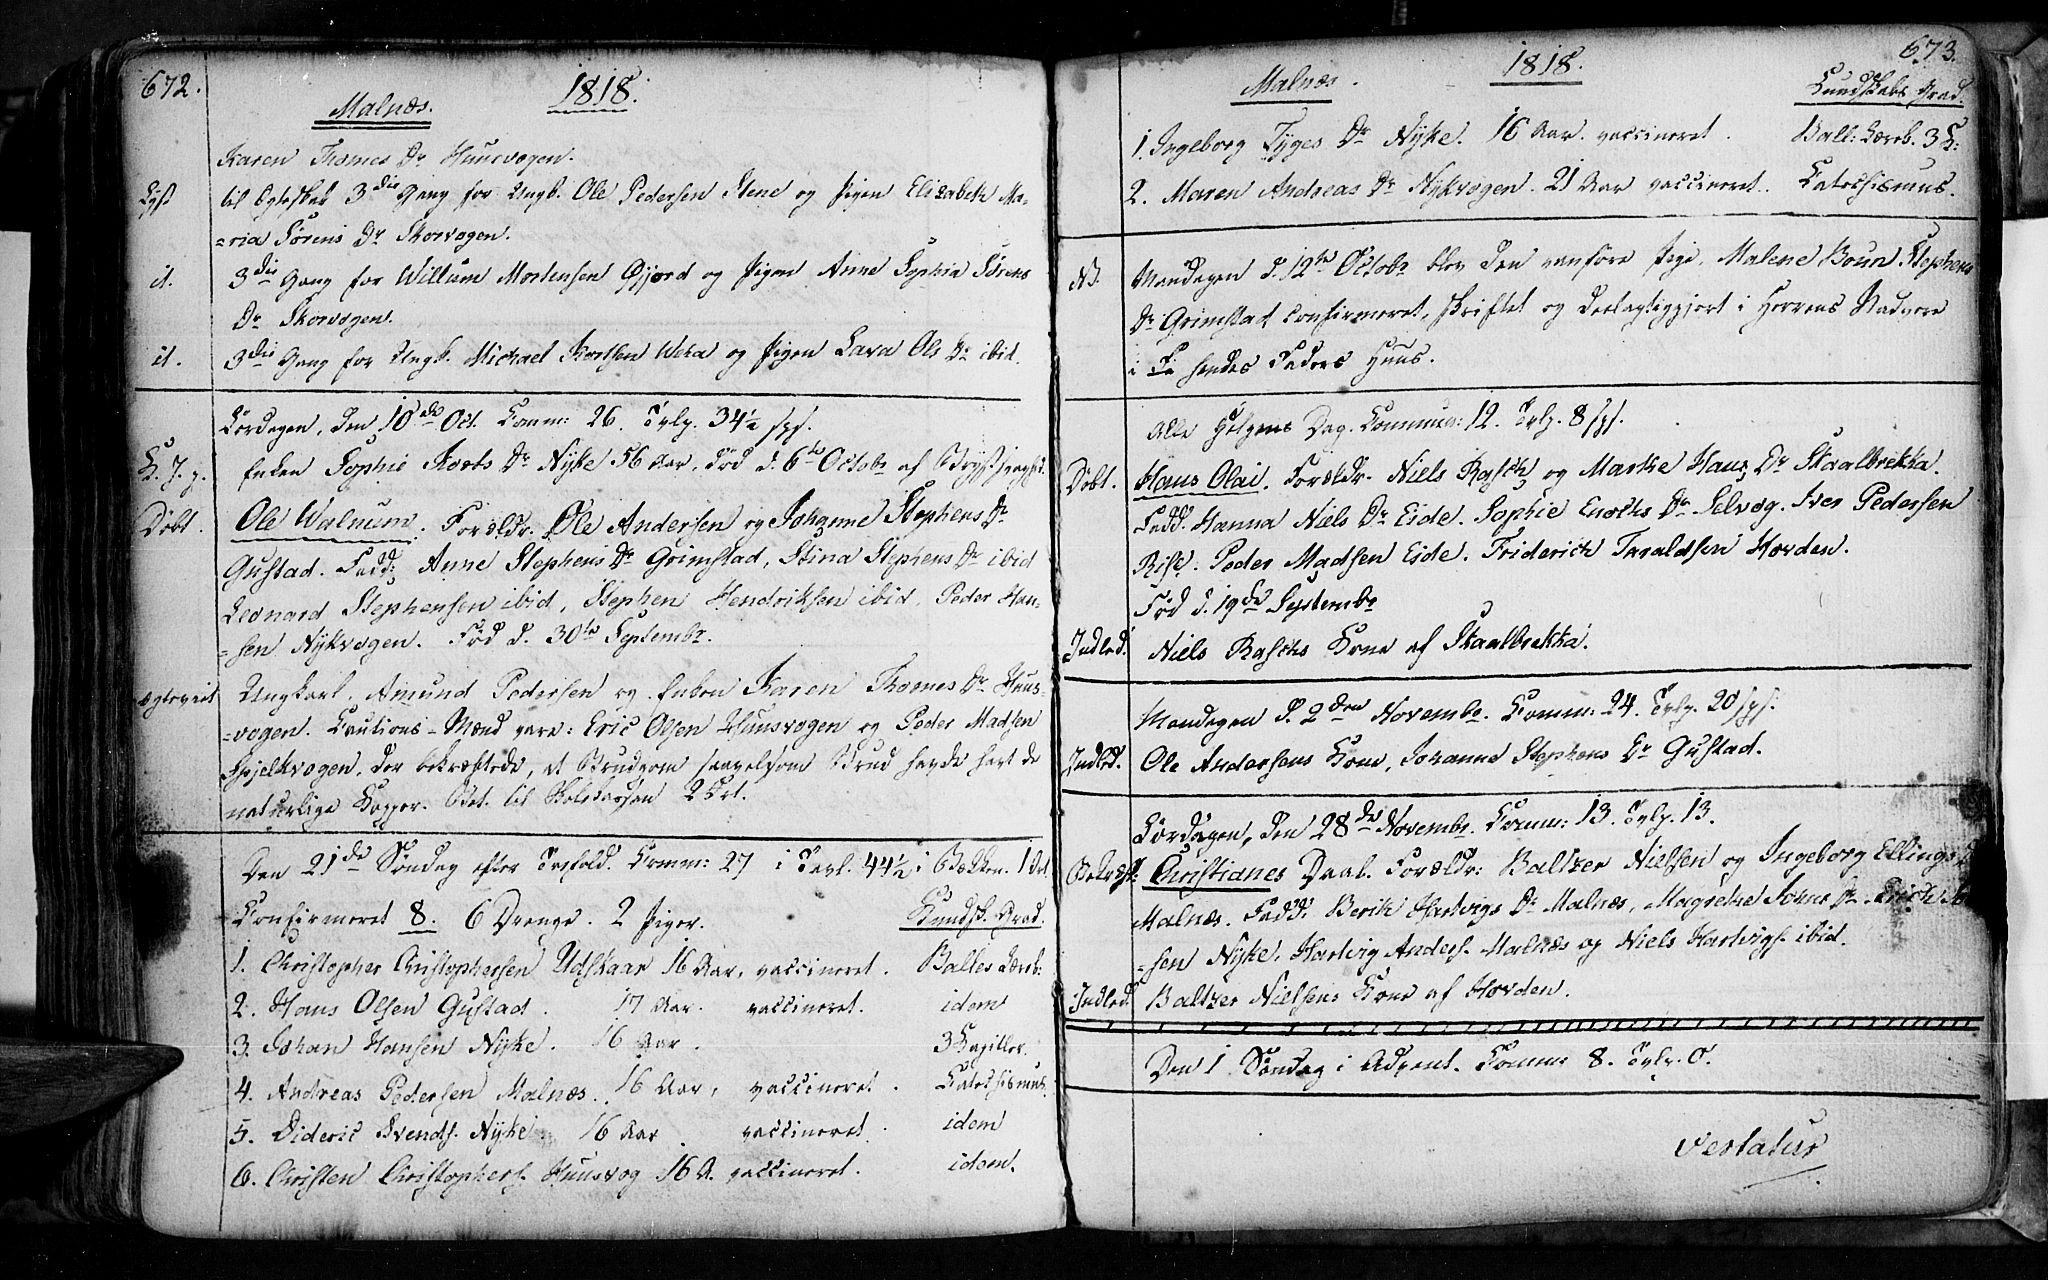 672.
Malnæs.
1818.
Karen Thomes Dr Huusvogen.
Lyst til Egteskab 3die Gang for Ungk. Ole Pedersen Stene og Pigen Elisabeth Ma-
=ria Sörens Dr Skorvogen.
it. 3die Gang for Willum Mortensen Gjord og Pigen Anne Sophia Sörens
Dr Skorvogen.
it. 3die Gang for Ungk. Michael Kortsen Weta og Pigen Lava Ols Dr ibid.
Lördagen, den 10de Oct. Comm: 26. Tvlp. 34½ sps.
Enken Sophie Korts Dr Nyke 56 Aar, död d. 6te Octobr af Brystsvaghed.
Döbt. Ole Walnum. Forældr. Ole Andersen og Johanne Stephens Dr
Gustad. Fadd: Anne Stephens Dr Grimstad, Stina Stephens Dr ibid
Leonard Stephensen ibid, Stephen Hendriksen ibid, Peder Han-
=sen Nykvogen. Föd d. 30te Septembr.
Ungkarl. Amund Pedersen og Enken Karen Thomes Dr Huus-
=vogen. Cautions-Mænd vare: Eric Olsen Huusvogen og Peder Madsen
Spjelkvogen, der bekræftede, at Brudgom saavelsom Brud havde havt de
naturlige Kopper. Bet. til 2 Ort.
Den 21de Söndag efter Trefold. Comm: 27 i Tavl. 44½ i Bækken. 1 Ort
Confirmeret 8. 6 Drenge. 2 Piger. Kundsk. Grad.
1. Christopher Christophersen Udskaar 16 Aar, vaccineret. Balles Læreb:
2. Hans Olsen Gustad. 17 Aar. vaccineret. idem
3. Johan Hansen Nyke. 16 Aar. 3 Kapitler.
4. Andreas Pedersen Malnæs. 16 Aar, vaccineret. Catechismus.
5. Dideric Svends. Nyke. 16 Aar vaccineret. idem
6. Christen Christophers. Huusvog 16 A. vaccineret. idem.
673.
Malnæs.
1818.
Kundskabs Grad.
1. Ingeborg Tyges Dr Nyke. 16 Aar. vaccineret. Ball: Læreb. 3 K:
2. Maren Andreas Dr Nykvogen. 21 Aar vaccineret. Catechismus.
NB. Mandagen d. 12te Octobr blev den vanföre Pige, Malene Boun Stephens
Dr Grimstad confirmeret, skriftet og deelagtiggjort i Herrens Nadvere
i hendes Faders Huus.
Alle Helgens Dag. Commun: 12. Tvlp. 8 sps.
Döbt. Hans Olai. Forældr. Niels Rasch og Marthe Hans Dr Skaalbrekka.
Fadd. Hanna Niels Dr Eide. Sophie Enochs Dr Selvog. Iver Pedersen
Rise. Peder Madsen Eide. Friderich Taraldsen Horden.
Föd d. 19de Septembr
Indled. Niels Raschs Kone af Skaalbrekka.
Mandagen d. 2den Novembr. Comm: 24. Tvlp. 20 sps.
Indled. Ole Andersens Kone, Johanne Stephens Dr Gustad.
Lördagen, den 28de Novembr. Comm: 13. Tvlp. 13.
Bekræft: Christianes Daab. Forældr: Baltzer Nielsen og Ingeborg Ellings
Malnæs. Fadd. Berith Hartvigs Dr Malnæs, Magrethe Johns Dr
=sen Nyke, Hartvig Anders. Malnæs og Niels Hartvigs. ibid.
Indled. Baltzer Nielsens Kone af Horden.
Den 1 Söndag i Advent. Comm: 8. Tvlp. 0.
Vertatur